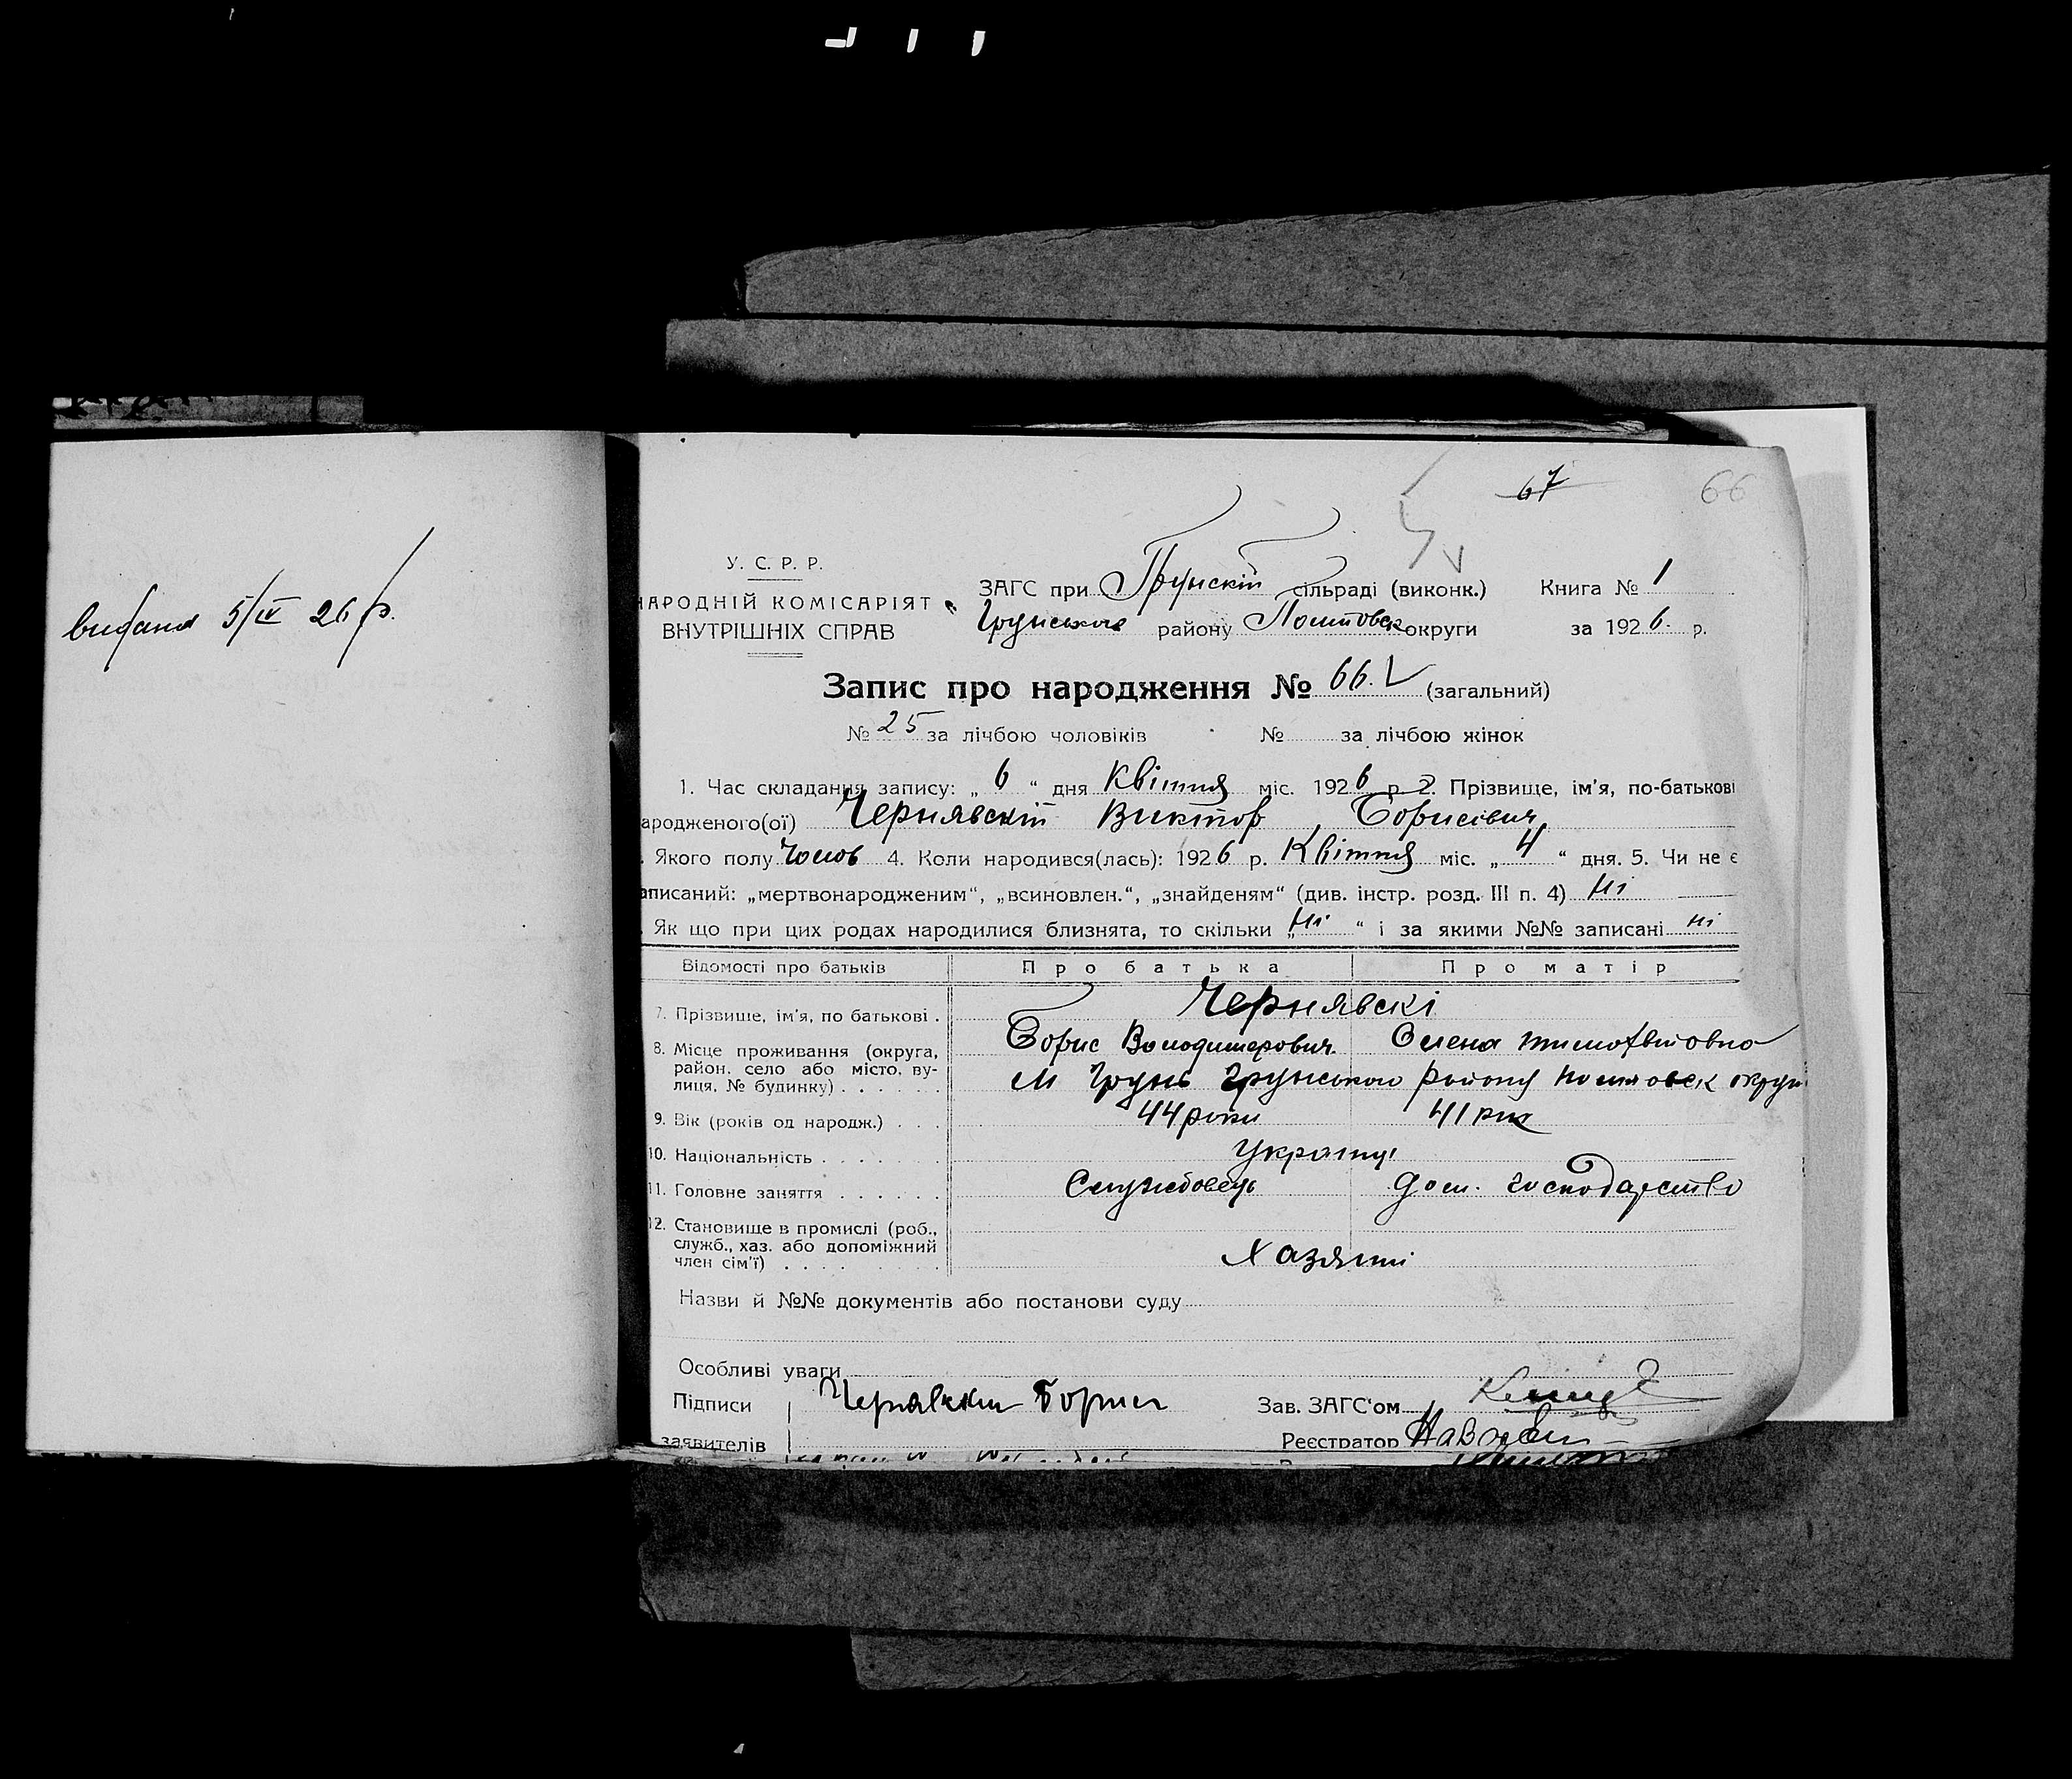 видана 5/IV 26 р.
67 66
У. С. Р. Р.
НАРОДНІЙ КОМІСАРІЯТ
ВНУТРІШНІХ СПРАВ
ЗАГС при Грунскій сільраді (виконк.) Книга № 1
Грунського району Полтовськ округи за 1926. р.
Запис про народження № 66. (загальний)
№ 25 за лічбою чоловіків № за лічбою жінок
1. Час складання запису: „ 6 “ дня Квітня міс. 1926 р. 2. Прізвище, ім'я, по-батькові
ародженого(ої) Чернявскій Виктор Борисівич
. Якого полу Чолов 4. Коли народився(лась): 1926 р. Квітня міс. „ 4 “ дня. 5. Чи не є
аписаний: „мертвонародженим“, „всиновлен.“, „знайденям“ (див. інстр. розд. III п. 4) Ні
. Як що при цих родах народилися близнята, то скільки „ Ні “ і за якими №№ записані ні
Відомості про батьків Про батька Про матір
7. Прізвише, ім'я, по батькові . Чернявскі
Борис Володимерович Олена Тимофвіовно
8. Місце проживання (округа,
район, село або місто, ву-
лиця, № будинку) . . . . . м Грунь Грунського району Полтовск округи
9. Вік (років од народж.) . . . 44 роки 41 рік
10. Національність . . . . . . Україці
11. Головне заняття . . . . . . Службовець дом. господарство
12. Становише в промислі (роб.,
служб., хаз. або допоміжний
член сім'ї) . . . . . . . . . Хазяїни
Назви й №№ документів або постанови суду
Особливі уваги
Підписи Чернявский Борис Зав. ЗАГС'ом
заявителів Реєстратор